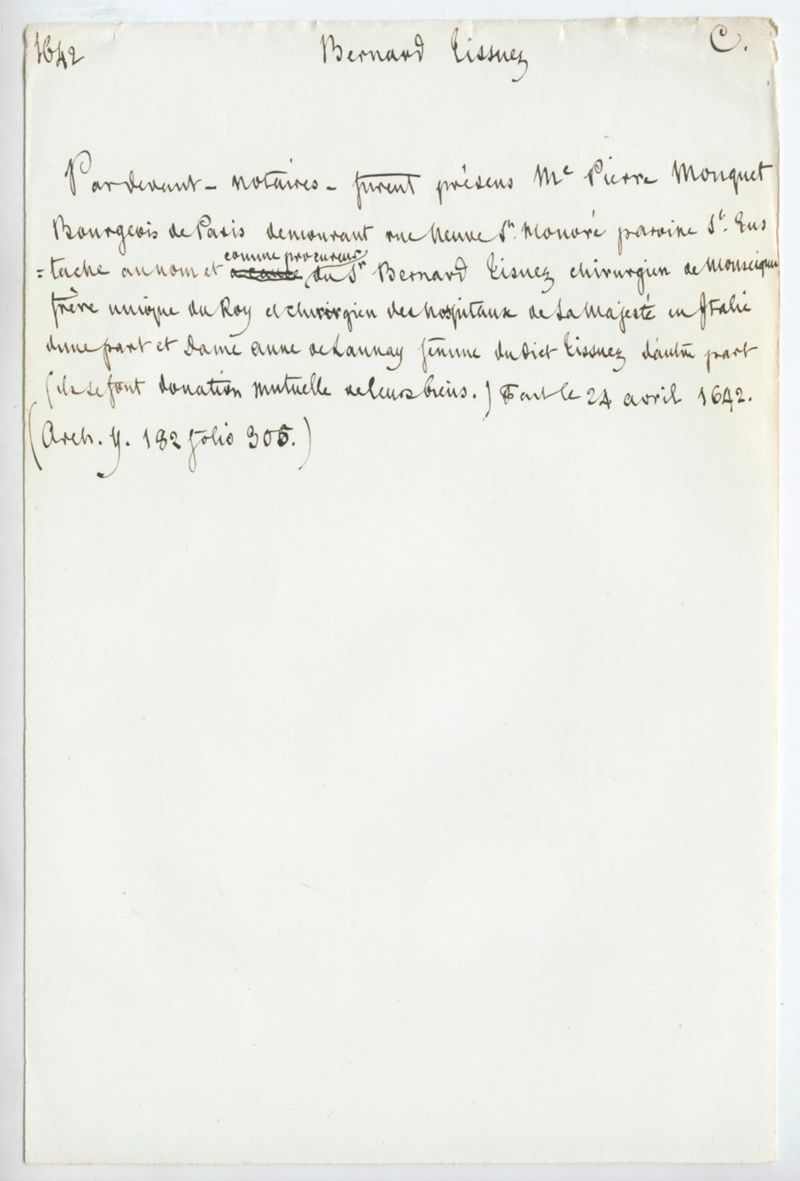 1642 Bernard Tissuez C.
Par devant – notaires – furent présens Me Pierre Monquet
Bourgeois de Paris demeurant rue Neuve St. Honoré paroisse St. Eus
=tache au nom et comme procureur du Sr Bernard Tisnez chirurgien de Monseigneur
frère unique du Roy et chirurgien des hospitaux de La Majesté en Italie
d'une part et Dame Anne de Launay femme dudict Tissuez d'autre part
(ils se font donation mutuelle de leurs biens.) Fait le 24 avril 1642.
(Arch. Y. 182 folio 305.)